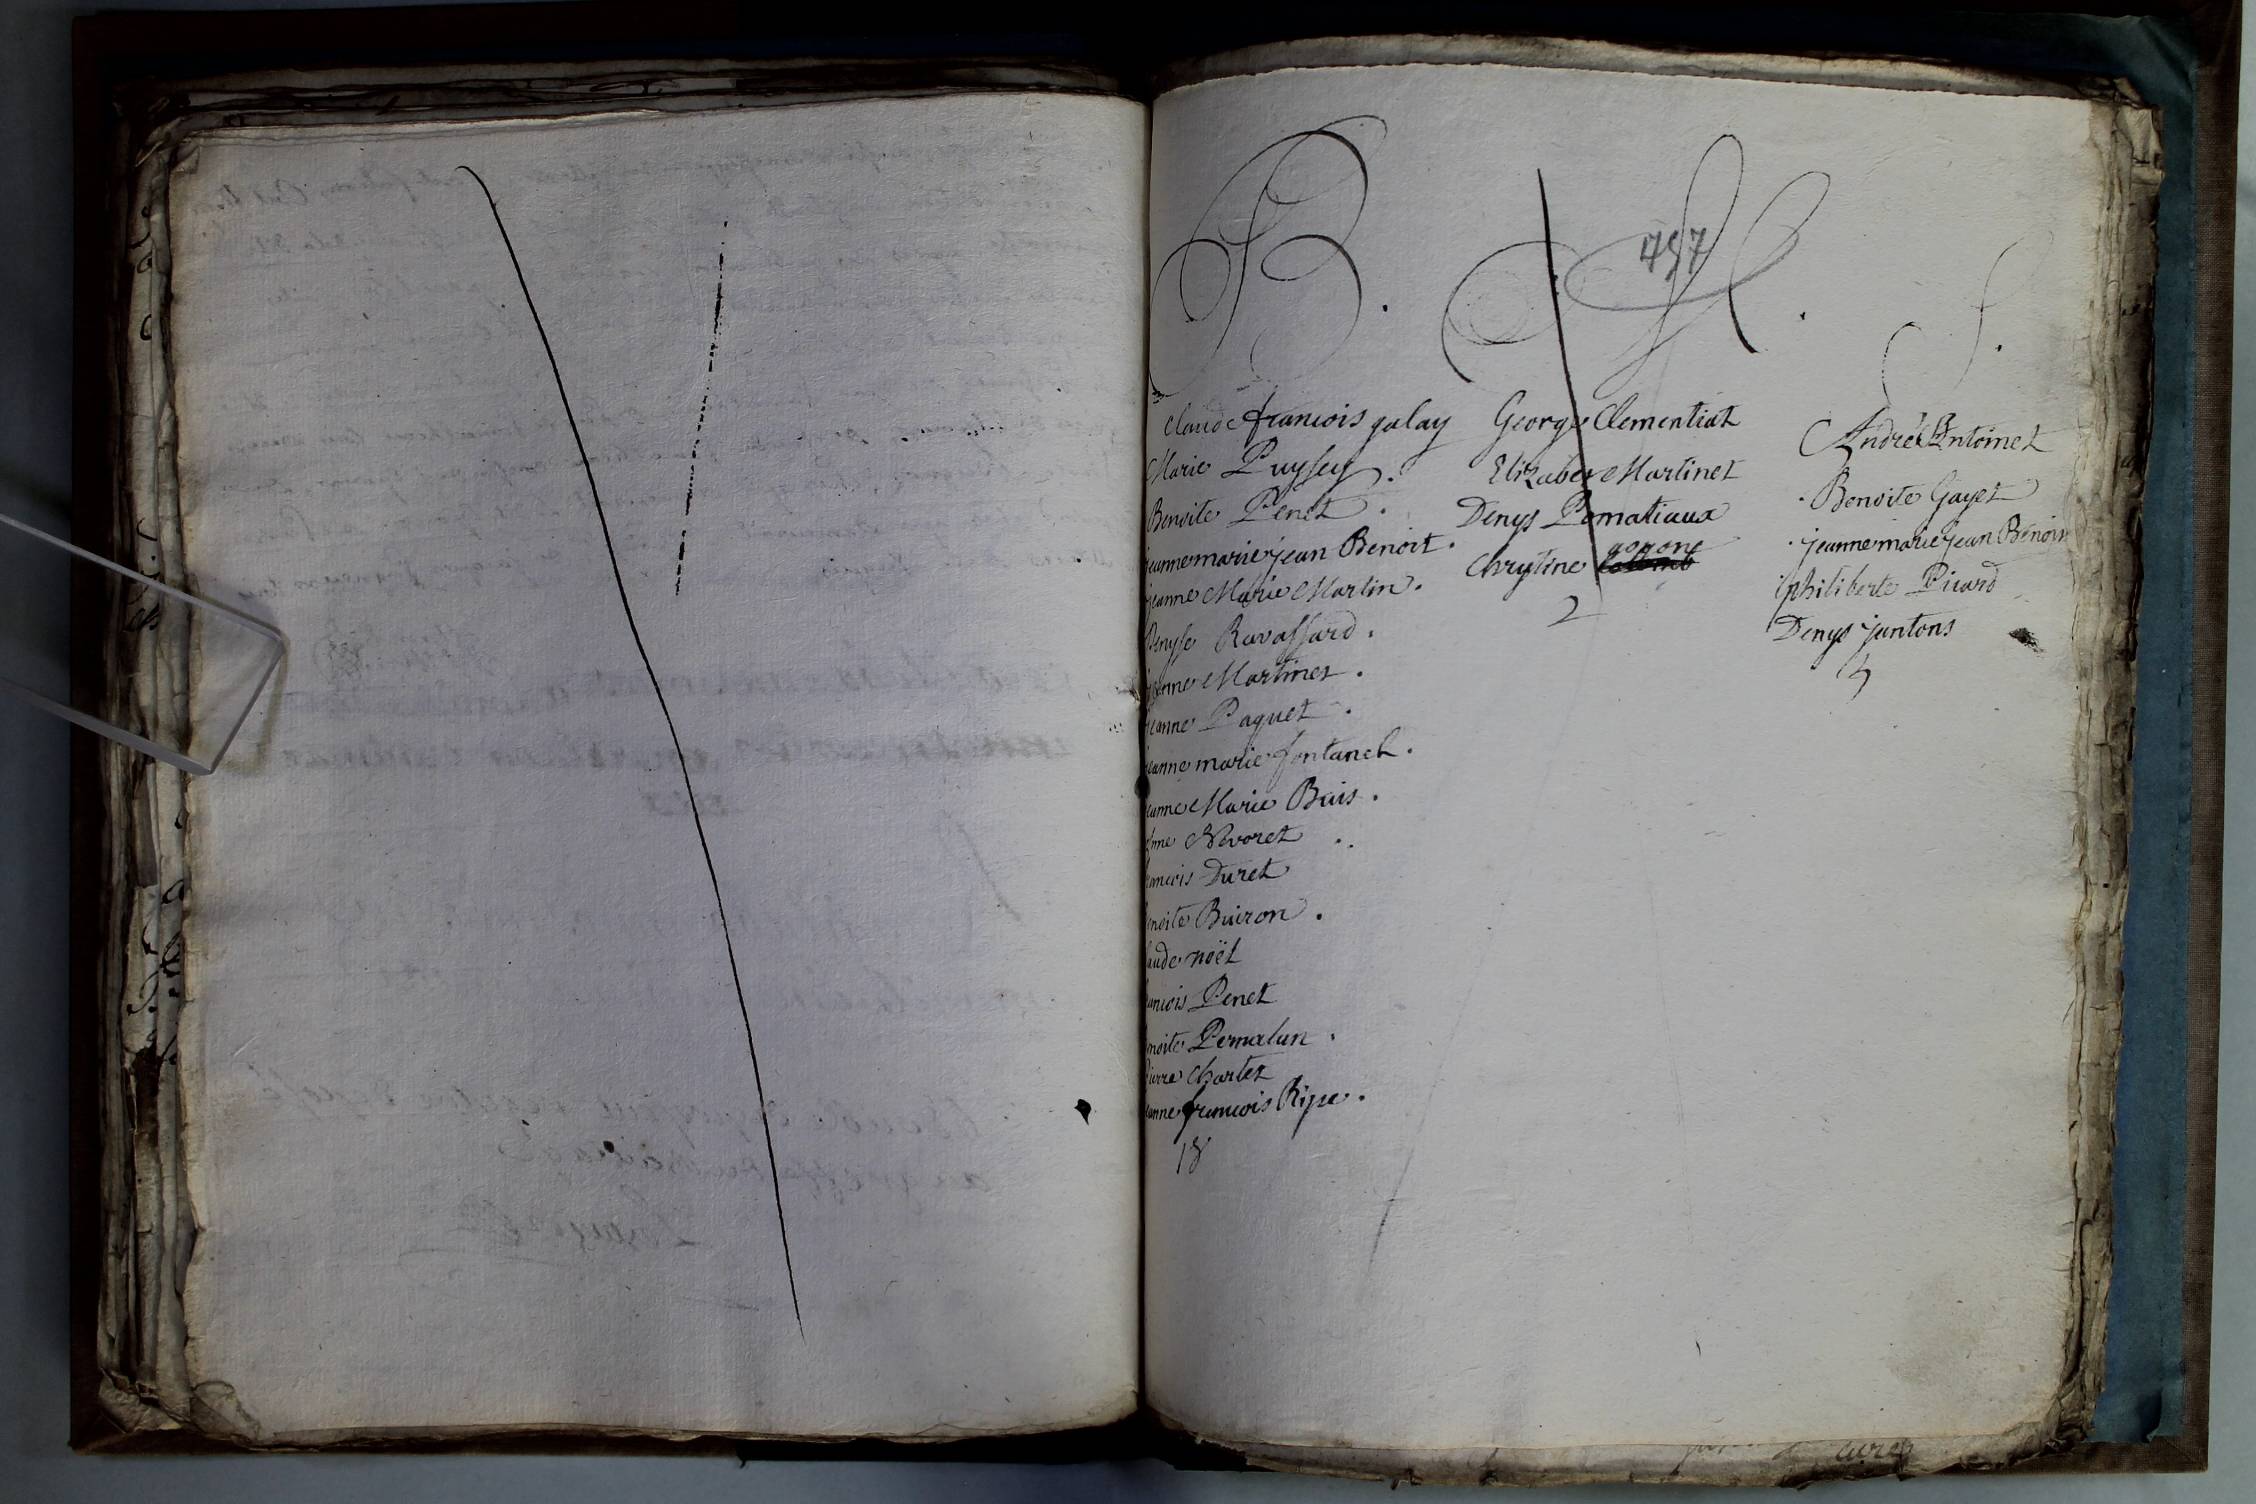 B. M. S.
757
Claude francois galay
Marie Puyssey.
Benoite Penet.
jeannemarie jean Benoit.
jeanne Marie Martin.
Denyse Ravassard.
jeanne Martinet.
jeanne Paquet.
jeanne marie fontanel.
jeanne Marie Buis.
Anne Nevoret..
francois Duret
Benoite Buiron.
Claude noël
francois Penet
Benoite Pemalun.
Pierre Chartet
jeanne francois Ripe.
18
George Clementiat
Elizabet Martinet
Denys Pematiaux
gogone
Chrystine
2
André Antoinet
Benoite Gayet
jeannemarie jean Benoit
philiberte Picard
Denys juntons
5